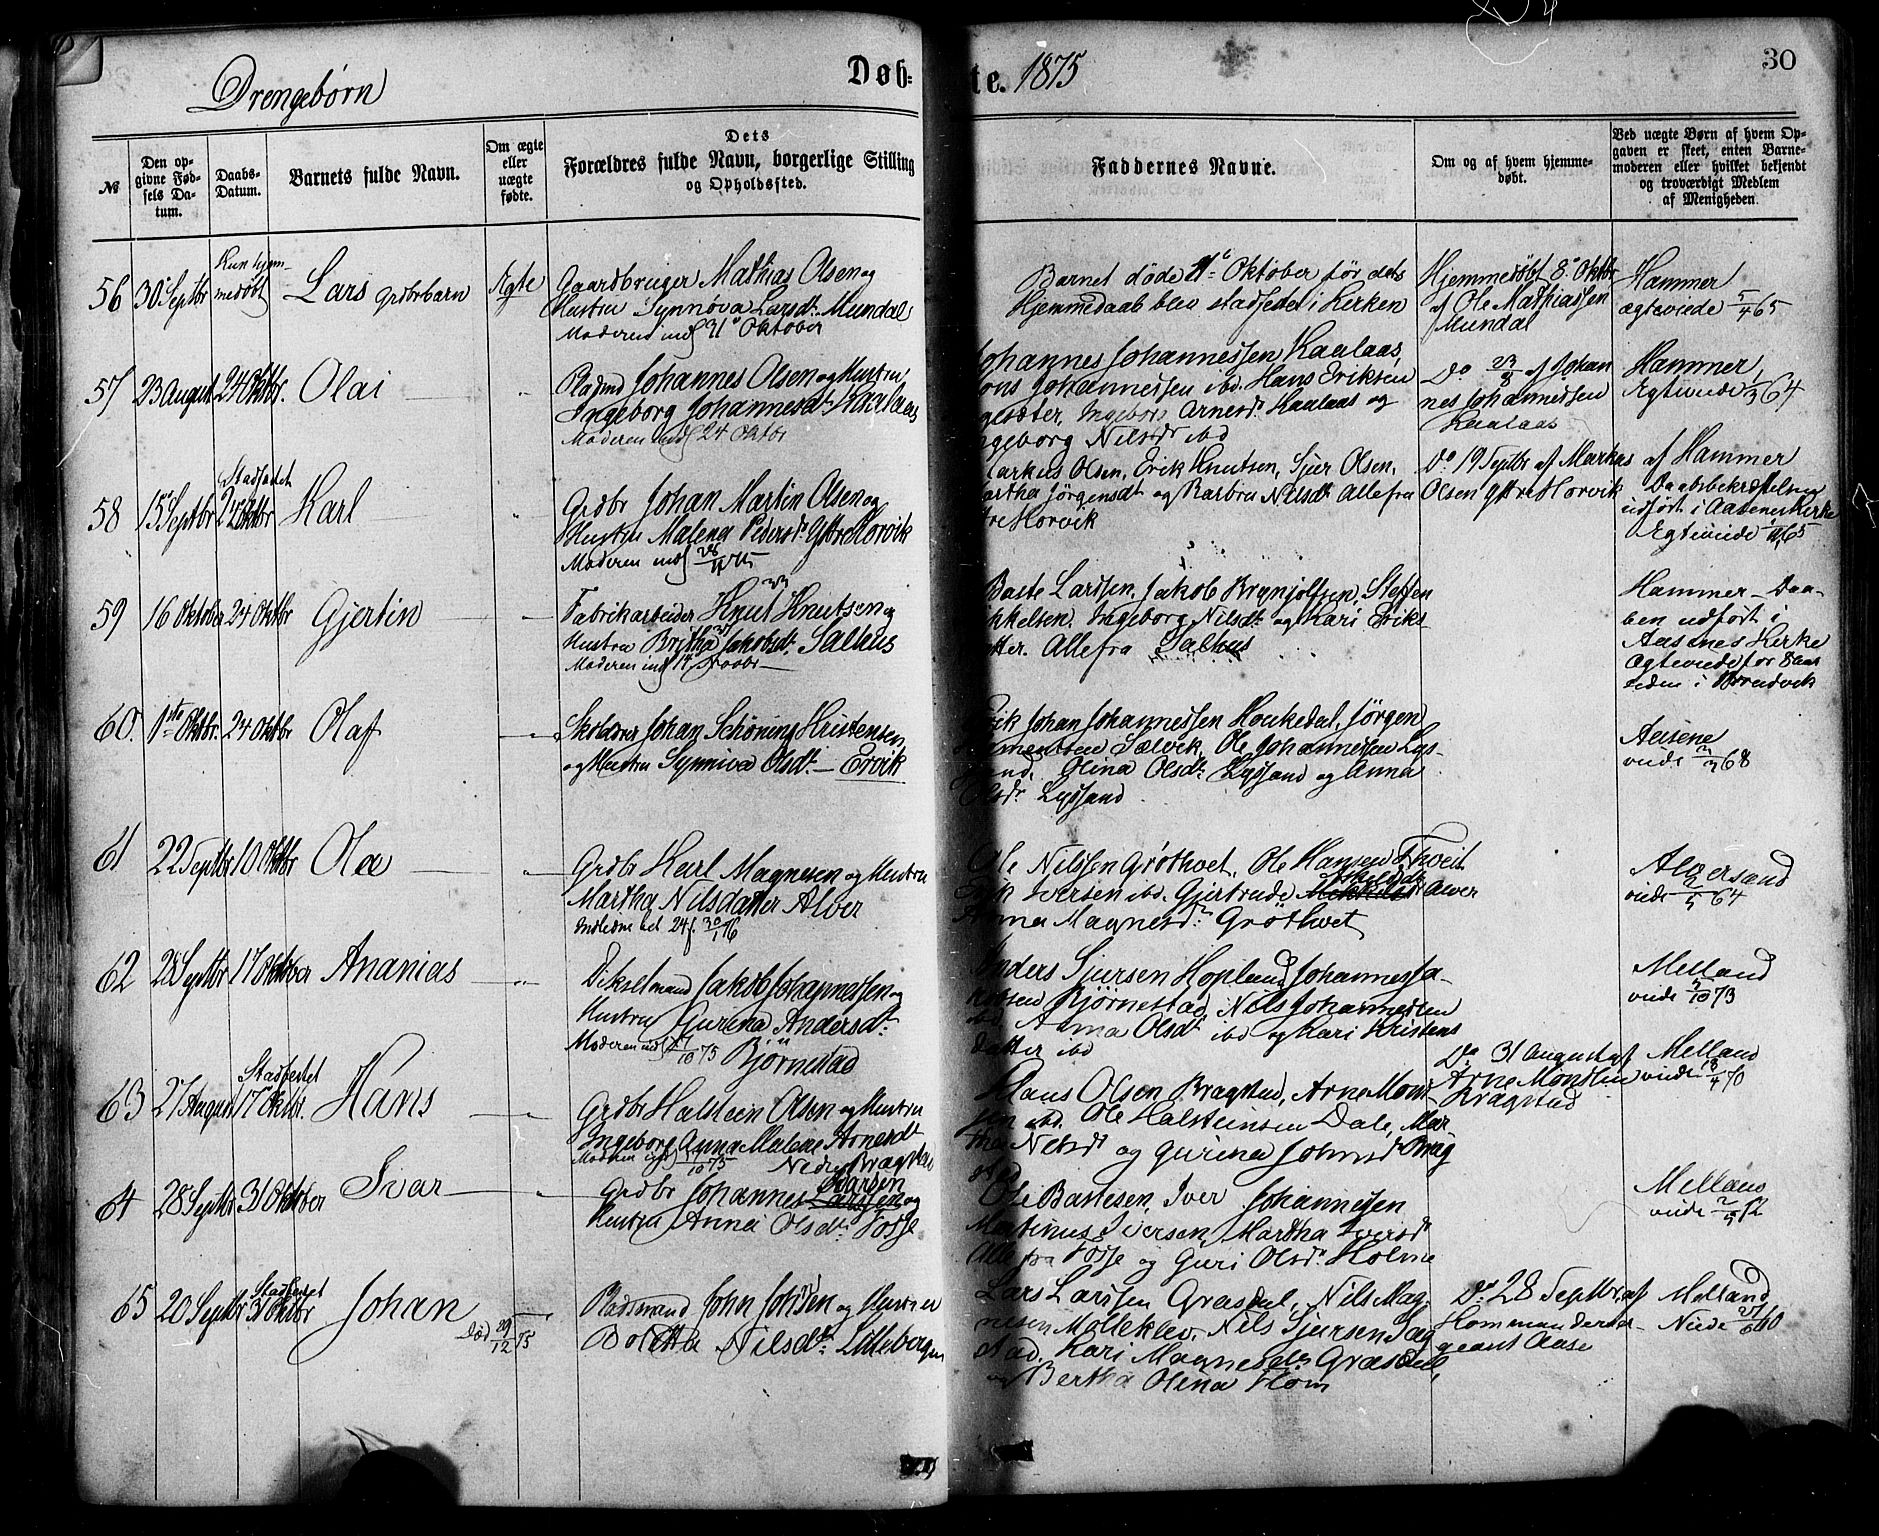 Drengebørn
Døb-
te. 1875
30
№
Den op-
givne Fød-
sels Da-
tum.
Daabs-
Datum.
Barnets fulde Navn.
Om ægte
eller
uægte
fødte.
Dets
Forældres fulde Navn, borgerlige Stilling
og Opholdssted.
Faddernes Navne.
Om og af hvem hjemme-
døbt.
Ved uægte Børn af hvem Op-
gaven er skeet, enten Barne-
moderen eller hvilket bekjendt
og troværdigt Medlem
af Menigheden.
56 30 Septbr
Kun hjem-
medøbt
Lars Grdbrbarn
Ægte
Gaardbruger Mathias Olsen og
Hustru Synnøva Larsdt. Mundal
Moderen indl Oktober
Barnet døde Oktober før dets
Hjemmedaab blev stadfæstet i Kirken
Hjemmedøbt 8 Oktbr
af Ole Mathiassen
Mundal
Hammer
ægteviede 5/4 65
57 23 August 24 Oktbr. Olai
Pladsmd Johannes Olsen og Hustru
Ingeborg Johannesdt. Kaalaas
Moderen indl 24 Oktbr
Johannes Johannessen Kaalaas,
Johannessen ibd. Hans Eriksen
Ingeborg Arnesdt. Kaalaas og
Ingeborg Nilsdt ibd
Do 23/8 af Johan
nes Johannessen
Kaalaas
Hammer,
Egteviede 64
58 15 Septbr
Stadfæstet
24 Oktbr
Karl
Grdbr Johan Martin Olsen og
Hustru Malena Pedersdt. Ytre Horvik
Moderen indl
Markus Olsen, Erik Knutsen, Sjur Olsen,
Martha Jørgensdt og Barbru Nilsdt Alle fra
Ytre Horvik
Do 19 Septbr af Markus
Olsen Ytre Horvik
af Hammer
Daabsbekræftelsen
udført i Aasene Kirke
Egteviede 65
59 16 Oktober 24 Oktbr Gjertin
Fabrikarbeider Knut Knutsen og
33
Hustru Britha Jakobsdt. Salhus
Moderen indl 14 Novbr
Baste Larssen, Jakob Brynjolfsen, Steffen
Mikkelsen, Ingeborg Nilsdt og Kari Eriks-
datter. Alle fra Salhus
Hammer – Daa-
ben udført i
Aasenes Kirke
Ægteviede for 8 Aar
siden i Breidvik
60. 1ste Oktbr. 24 Oktbr Olaf
Skolelærer Johan Schöning Kristensen
og Hustru Synniva Olsdt. – Ervik
Erik Johan Johannessen Haukedal, Jørgen
Klementsen Sælvik, Ole Johannessen Lys-
sand, Olina Olsdt. Lyssand og Anna
Olsdt. Lyssand
Aasene
viede 68
61 22 Septbr 10 Oktbr Ole
Grdbr Karl Magnesen og Hustru
Martha Nilsdatter Alver
Indledne bet 24 f. 30/1 76
Ole Nilssen Grøthvet, Ole Hansen Tveit
Erik Iversen ibd. Gjertrude Alver
Anna Magnesdt. Grøthvet
Alversund
viede 64
62 28 Septbr 17 Oktober Ananias
Jakob Johannessen og
Hustru Gurina Andersdt.
Moderen indl 17/10 75 Bjørnestad
Anders Sjursen Hopland, Johannes Ja-
kobsen Bjørnestad, Nils Johannessen
ibd, Anna Olsdt ibd og Kari Kristens
datter ibd
Melland
viede 10 73
63 27 August
Stadfæstet
17 Oktbr.
Hans
Grdbr Halstein Olsen og Hustru
Ingeborg Anna Malene Arnesdt
Moderen indl 17/10 75 Nedre Bragstad
Hans Olsen Bragstad, Arne Mons-
sen ibd. Ole Halsteinsen Dale, Mar
tha Nilsdt og Gurina Johnsdt Brag
stad
Do 31 August af
Arne Monssen
Bragstad
Melland
viede 13/4 70
64 28 Septbr 31 Oktober Ivar
Grdbr Johannes Larssen og
Ivarsen
Hustru Anna Olsdt. Fosse
Ole Bastesen, Iver Johannessen
Martinus Iversen, Martha Iversdt
Alle fra Fosse og Guri Olsdt. Holme
Melland
viede 72
65 20 Septbr
Stadfæstet
31 Oktbr
Johan
Død 29/12 75
Pladsmand John Johsen og Hustru
Boletta Nilsdt. Lillebergen
Lars Larssen Græsdal, Nils Mag-
nesen Molleklev, Nils Sjursen Sag
stad, Kari Magnesdt. Græsdal
og Bertha Olina Hom
Do. 28 Septbr, af
Kommandersar-
geant Aase
Melland
Viede 27/6 60